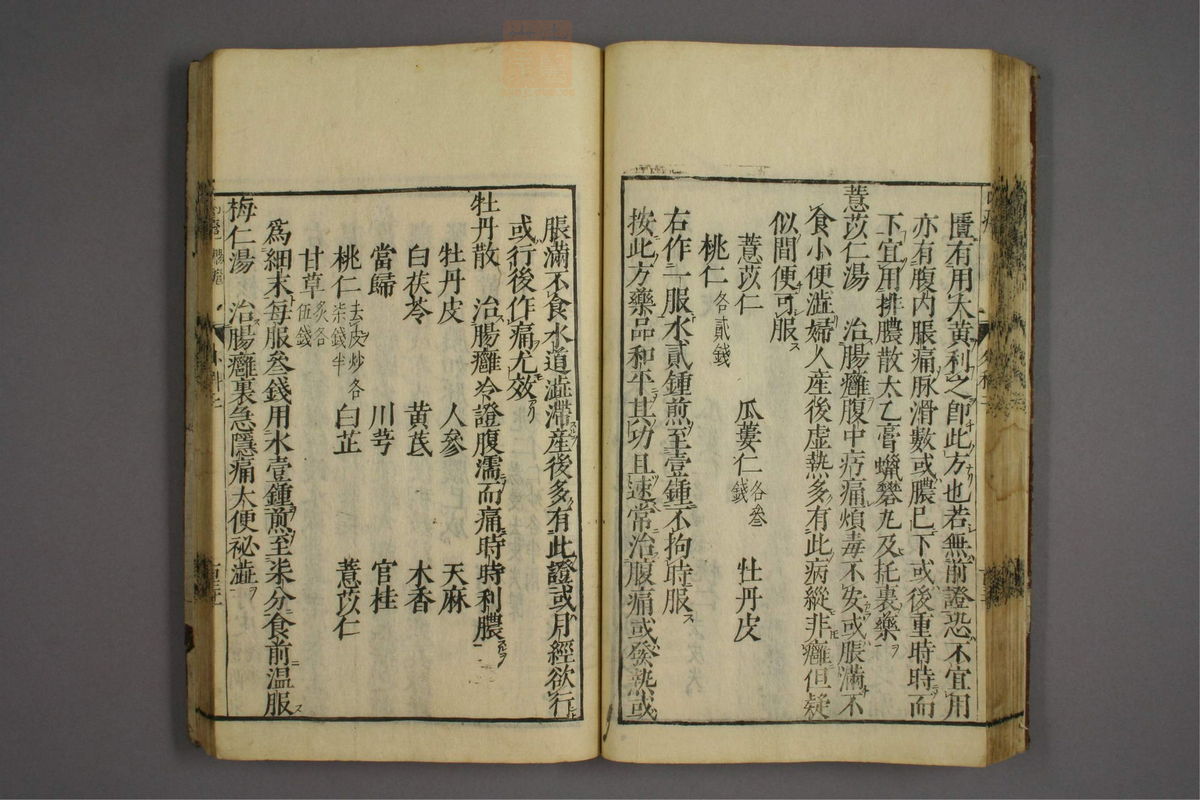 匱有用大黄利之即此方也若無前證恐不宜用
亦有腹内脹痛脉滑數或膿已下或後重時時而
下宜用排膿散太乙膏蠟礬丸及托裏藥
薏苡仁湯 治腸癰腹中㽲痛煩毒不安或脹滿不
食小便澁婦人産後虚熱多有此病縱非癰但疑
似間便可服
薏苡仁 瓜蔞仁各叁錢 牡丹皮
桃仁各貳錢
右作一服水貳鍾煎至壹鍾不拘時服
按此方藥品和平其功且速常治腹痛或發熱或
脹滿不食水道澁滯産後多有此證或月經欲行
或行後作痛尤效
牡丹散 治腸癰冷證腹濡而痛時時利膿
牡丹皮 人參 天麻
白茯苓 黄芪 木香
當歸 川芎 官桂
桃仁去皮炒各柒錢半 白芷 薏苡仁
甘草炙各伍錢
爲細末每服叁錢用水壹鍾煎至柒分食前温服
梅仁湯 治腸癰裏急隱痛大便祕澁